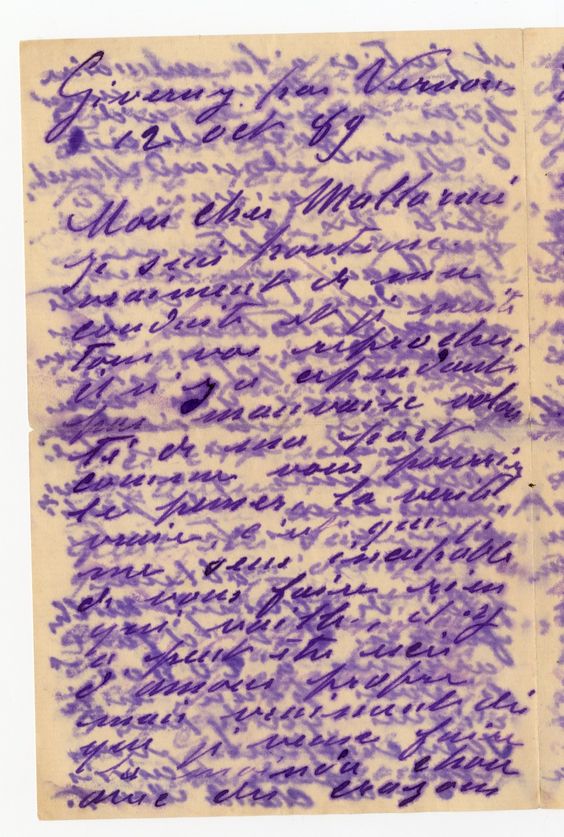 Giverny par Vernon
12 oct 89
Mon cher Mallarmé,
je suis honteux
vraiment de ma
conduite et je mérite
tous vos reproches,
il n'y a cependant
pas mauvaise volon
té de ma part
comme vous pourriez
le penser, la vérité
vraie, c'est que je
me sens incapable
de vous faire rien
qui vaille, il y
a peut être ici
d'amour propre
mais vraiment dès
que je veux faire
la moindre chose
avec des crayons